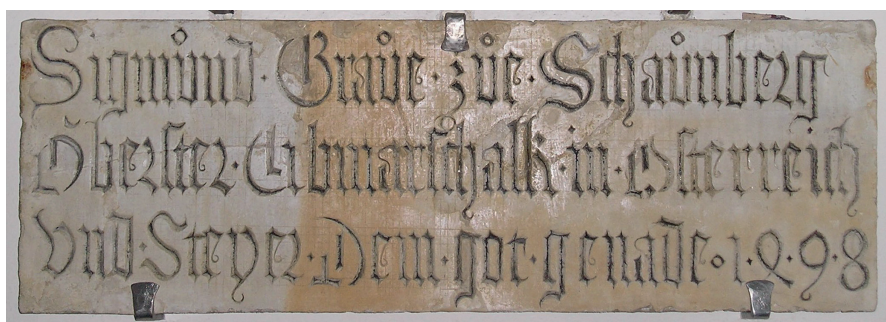 Sigmůnd · Graůe · zůe · Schaůnberg
Öberster · Erbmarschalk · in · Osterreich
vnd · Steyer · Dem · got · genade · 1 · 4 · 9 · 8